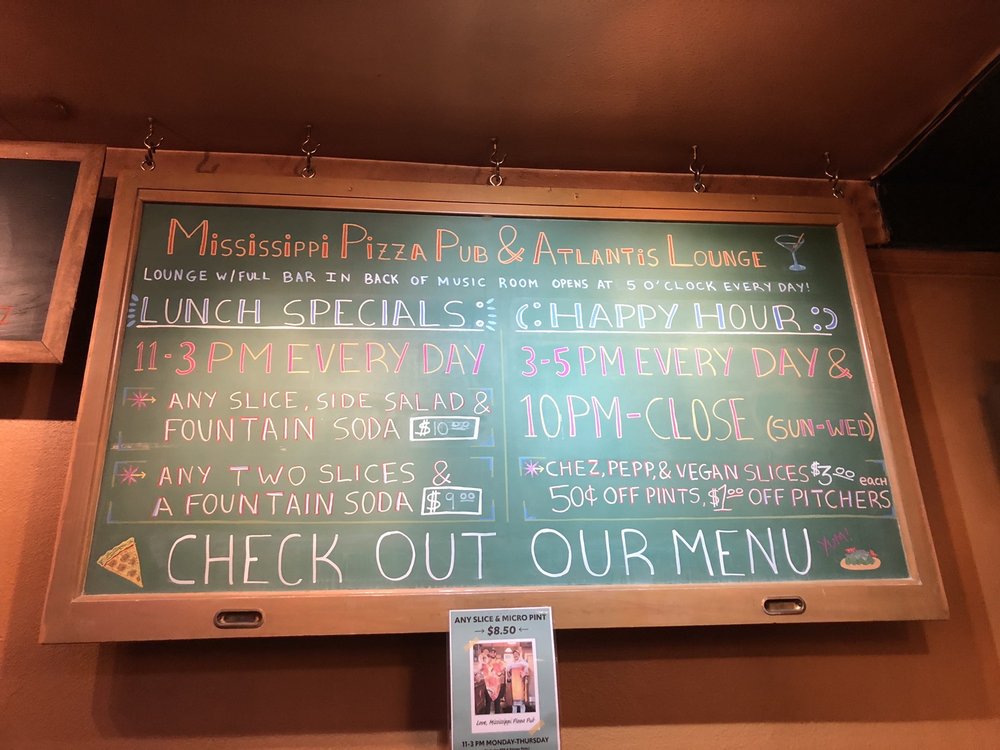 Mississippi Pizza Pub & Atlantis Lounge
LOUNGE W/FULL BAR IN BACK OF MUSIC ROOM OPENS AT 5 O'CLOCK EVERY DAY!
LUNCH SPECIALS:
11-3 PM EVERY DAY
ANY SLICE, SIDE SALAD &
FOUNTAIN SODA $10.00
ANY TWO SLICES &
A FOUNTAIN SODA $9.00
(:HAPPY HOUR:)
3-5 PM EVERY DAY &
10 PM-CLOSE (SUN-WED)
CHEZ, PEPP, & VEGAN SLICES $3.00 EACH
50¢ OFF PINTS, $1.00 OFF PITCHERS
CHECK OUT OUR MENU
YUM!
ANY SLICE & MICRO PINT
$8.50
Love, Mississippi Pizza Pub
11-3 PM MONDAY-THURSDAY